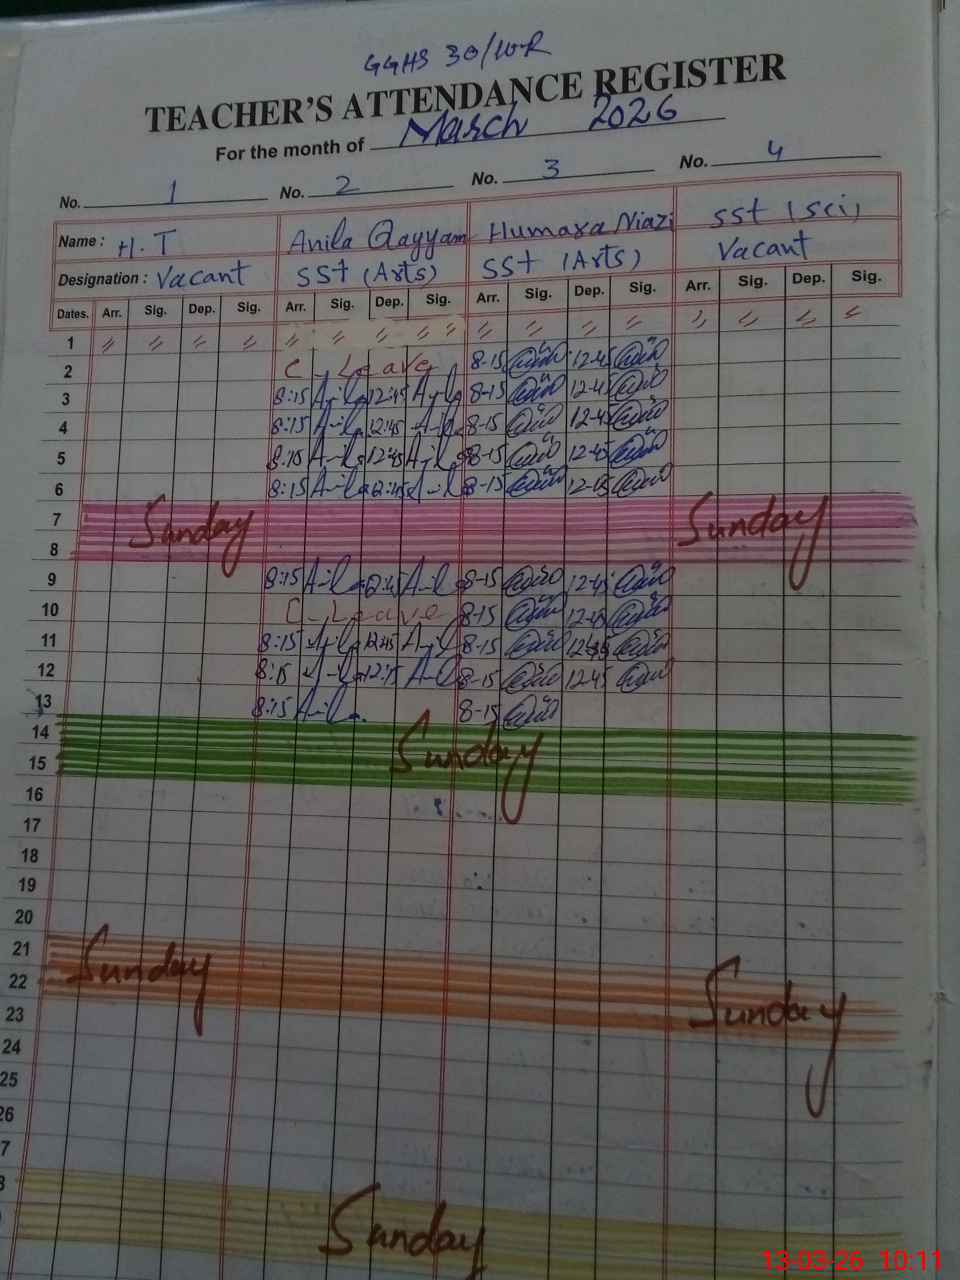 GGHS 30/10-R
TEACHER'S ATTENDANCE REGISTER
For the month of March 2026
No. 1 No. 2 No. 3 No. 4
Name : H.T Anila Qayyam Humara Niazi SSt (Sci)
Designation : Vacant SSt (Arts) SSt (Arts) Vacant
Dates. Arr. Sig. Dep. Sig. Arr. Sig. Dep. Sig. Arr. Sig. Dep. Sig. Arr. Sig. Dep. Sig.
1
2 C. Leave 8-15 12-45
3 8:15 12:45 8-15 12-45
4 8:15 12:45 8-15 12-45
5 8:15 12:45 8-15 12-45
6 8:15 8-15
7 Sunday Sunday
8
9 8:15 12:45 8-15 12-45
10 C. Leave 8-15 12-45
11 8:15 12:45 8-15 12-45
12 8:15 8-15 12-45
13 8:15 8-15
14
15 Sunday
16
17
18
19
20
21
22 Sunday Sunday
23
24
25
26
7
8
Sunday
13-03-26 10:11